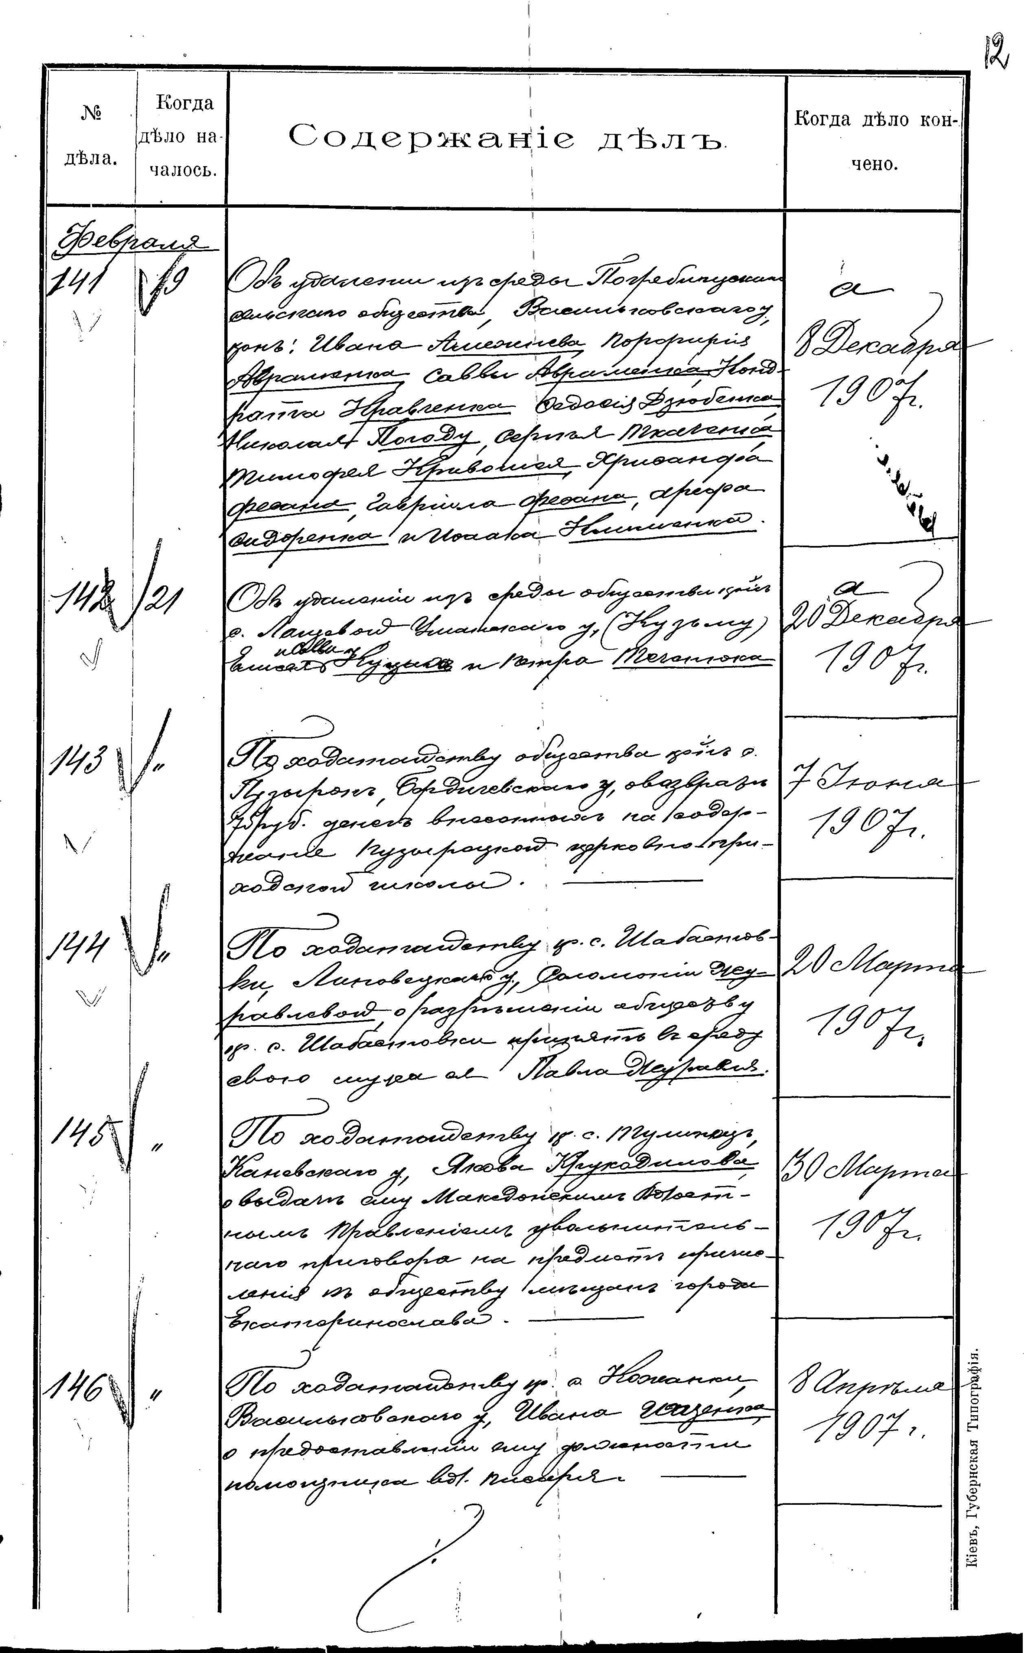 12
№ дѣла.
Когда дѣло началось.
Содержаніе дѣлъ.
Когда дѣло кончено.
Февраля
141 19
Объ удаленіи изъ среды
сельскаго общества, Васильковскаго у,
Ивана Порфирія
Авраменка, Саввы Авраменка, Конд-
рата Кравченка Федосія Дзюбенка
Николая Погоду, Сергѣя Ткаченка
Тимофея Кривошея, Хрисанфа
Феоана, Гавріила Феоана, Арефа
Сидоренка и Исаака Клименка.
8 Декабря
1907г.
142 21
Объ удаленіи изъ среды общества
с. Уманскаго у, (Кузьму)
и Савву
и Петра
20 Декабря
1907г.
143 "
По ходатайству общества с.
Пузырокъ, Бердичевскаго у, о возвратѣ
руб. денегъ внесенныхъ на содер-
жаніе Пузырецкой церковно-при-
ходской школы.
7 Іюня
1907г.
144 "
По ходатайству кр. с. Шабастов-
ки, Липовецкаго у, Соломоніи Жу-
равлевой, о разрѣшеніи обществу
кр. с. Шабастовки принять въ среду
свою мужа ея Павла Журавля.
20 Марта
1907г.
145 "
По ходатайству кр. с. Тулинецъ,
Каневскаго у, Якова Крукодилова
о выдачѣ ему Македонскимъ Волост-
нымъ Правленіемъ увольнитель-
наго приговора на предметъ причис-
ленія къ обществу мѣщанъ города
Екатеринослава.
30 Марта
1907г.
146 "
По ходатайству кр. с. Кожанки,
Васильковскаго у, Ивана
о предоставленіи ему должности
помощника вол. писаря.
8 Апрѣля
1907г.
Кіевъ, Губернская Типографія.